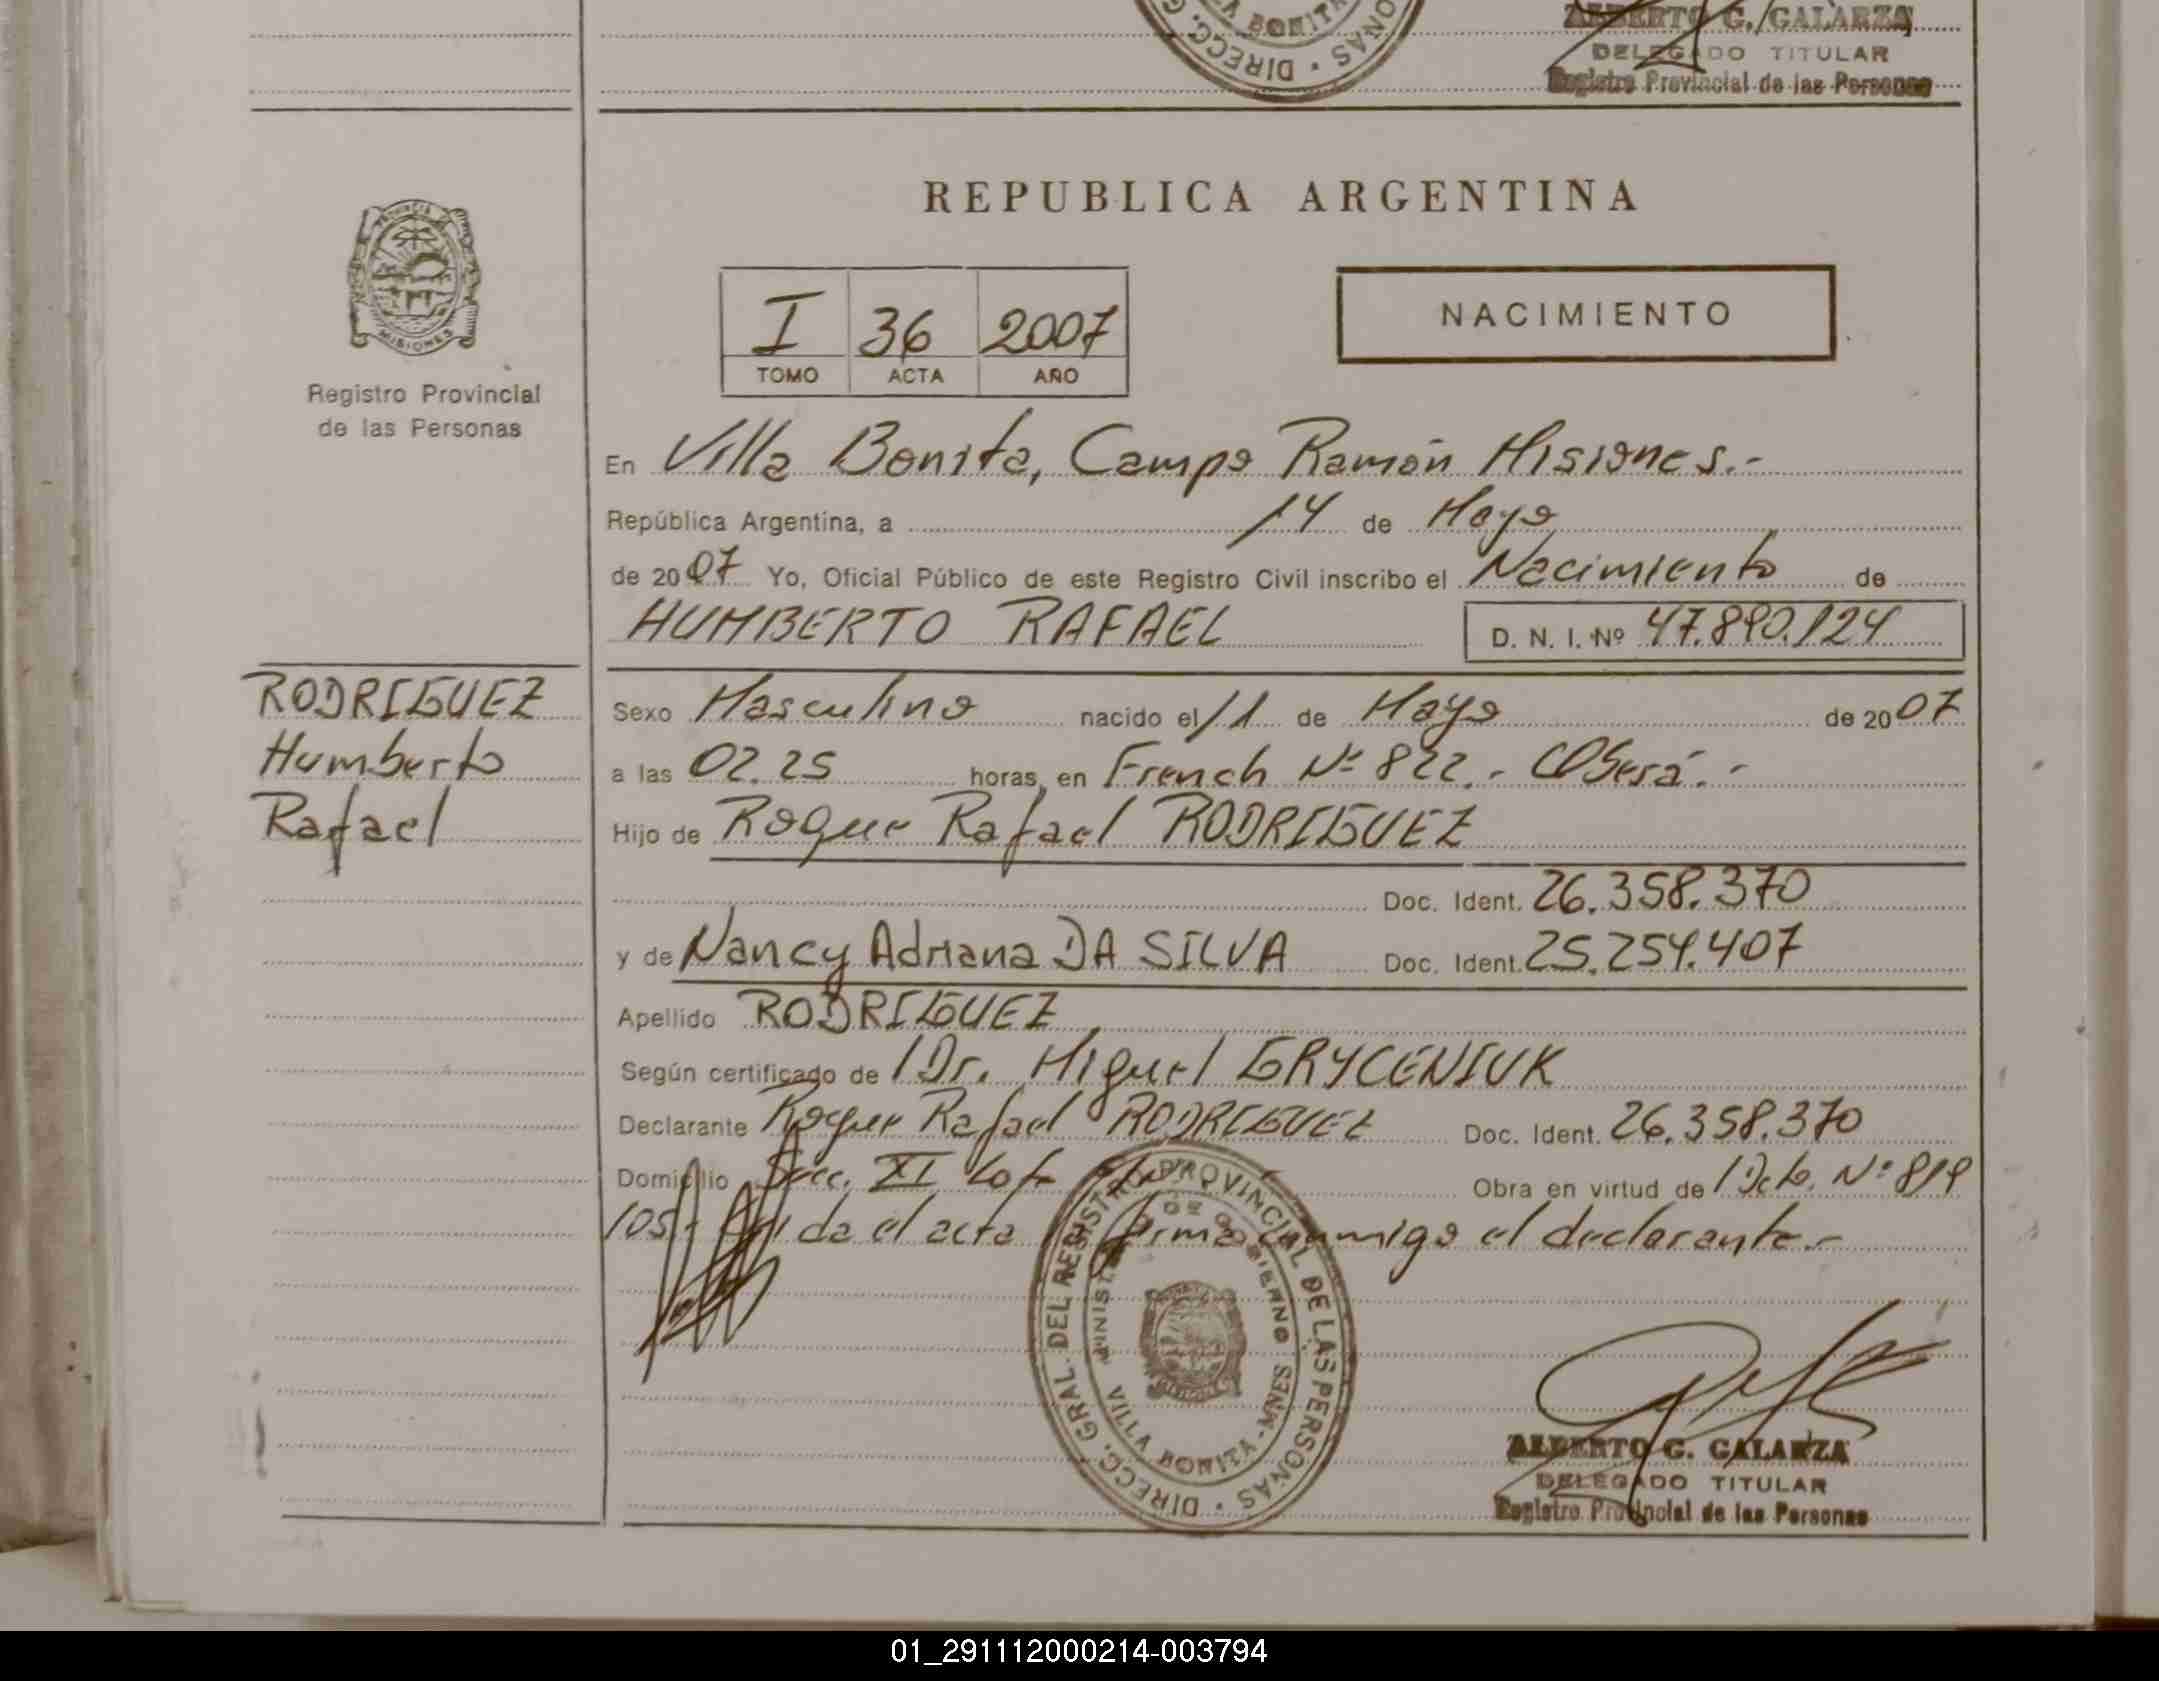 ALBERTO G. GALARZA
DELEGADO TITULAR
Registro Provincial de las Personas
LA BONITA
DIRECC. G
ONAS
REPUBLICA ARGENTINA
PROVINCIA
MISIONES
Registro Provincial
de las Personas
I 36 2007
TOMO ACTA AÑO
NACIMIENTO
En Villa Bonita, Campo Ramón Misiones.-
República Argentina, a 14 de Mayo
de 2007 Yo, Oficial Público de este Registro Civil inscribo el Nacimiento de
HUMBERTO RAFAEL D. N. I. Nº 47.890.124
RODRIGUEZ
Humberto
Rafael
Sexo Masculino nacido el 11 de Mayo de 2007
a las 02.25 horas, en French Nº 822.- Oberá.-
Hijo de Roque Rafael RODRIGUEZ
Doc. Ident. 26.358.370
y de Nancy Adriana DA SILVA Doc. Ident. 25.254.407
Apellido RODRIGUEZ
Según certificado de Dr. Miguel GRYCENIUK
Declarante Roque Rafael RODRIGUEZ Doc. Ident. 26.358.370
Domicilio Secc. XI Lote Obra en virtud de Dcto. Nº 819
/05.- Leída el acta firma conmigo el declarante.-
DIRECC. GRAL. DEL REGISTRO PROVINCIAL DE LAS PERSONAS
MINISTERIO DE GOBIERNO
VILLA BONITA - MNES
ALBERTO G. GALARZA
DELEGADO TITULAR
Registro Provincial de las Personas
01_291112000214-003794